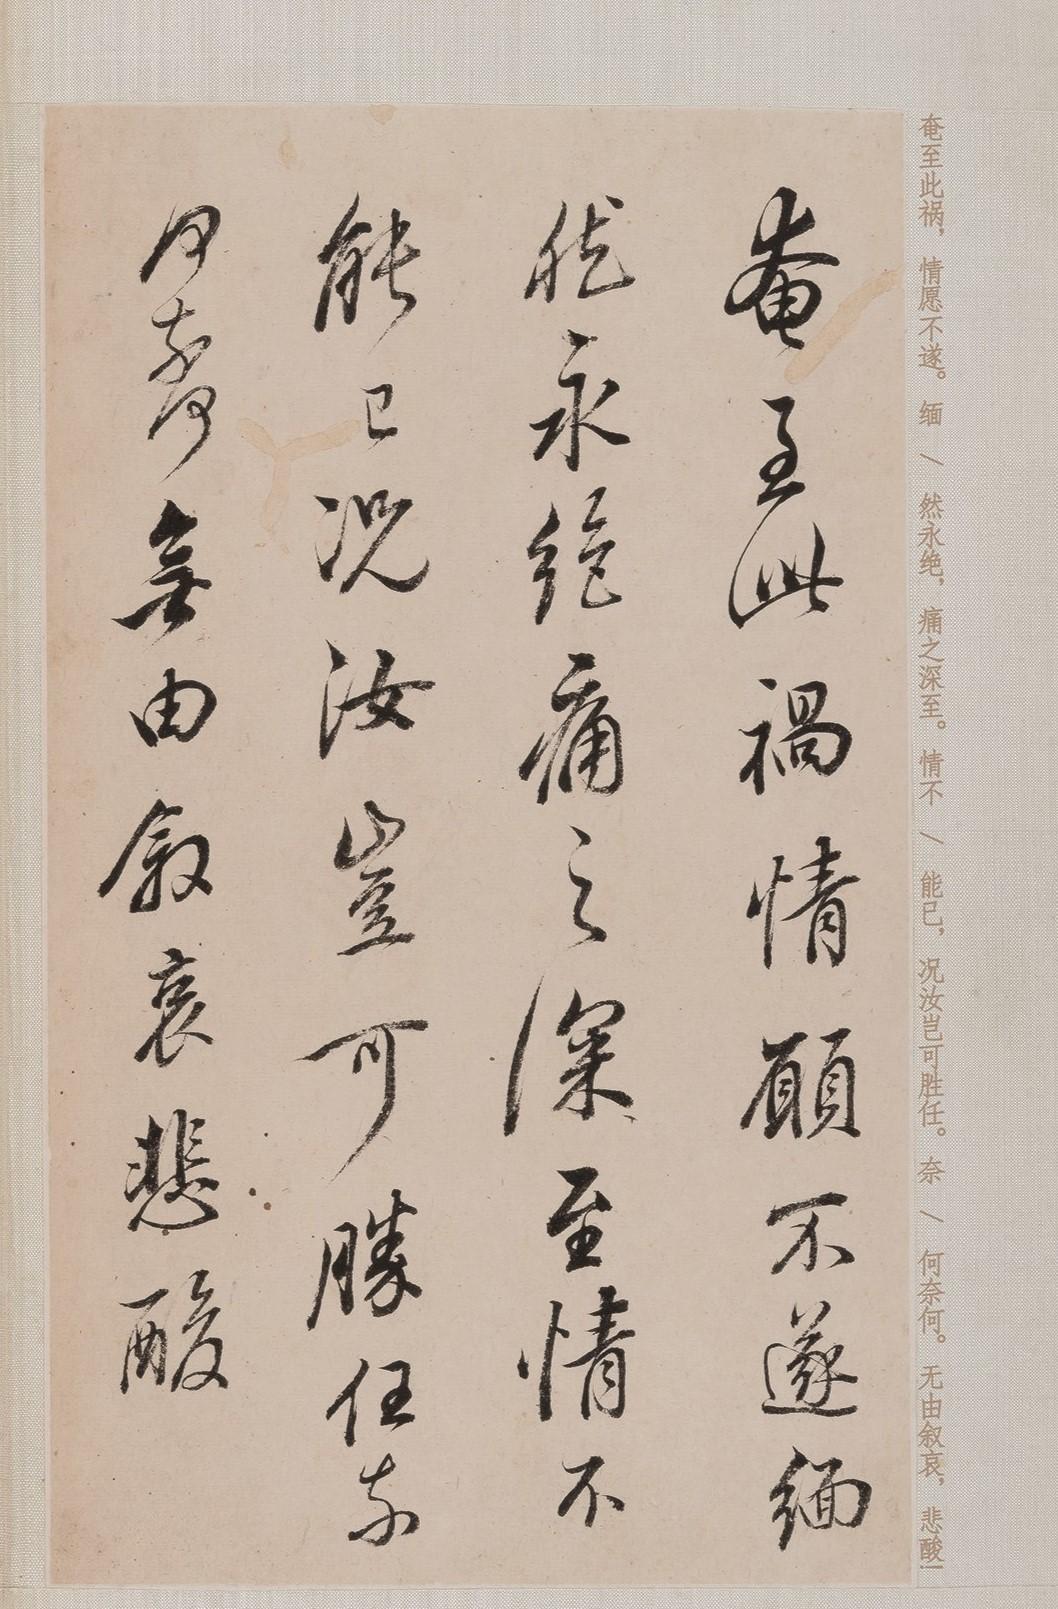 奄至此祸，情愿不遂。缅\然永绝，痛之深至。情不\能已，况汝岂可胜任。奈\何奈何。无由叙哀，悲酸!
奄至此禍情願不遂緬
然永絕痛之深至情不
能已况汝豈可勝任奈
何奈何無由敘哀悲酸